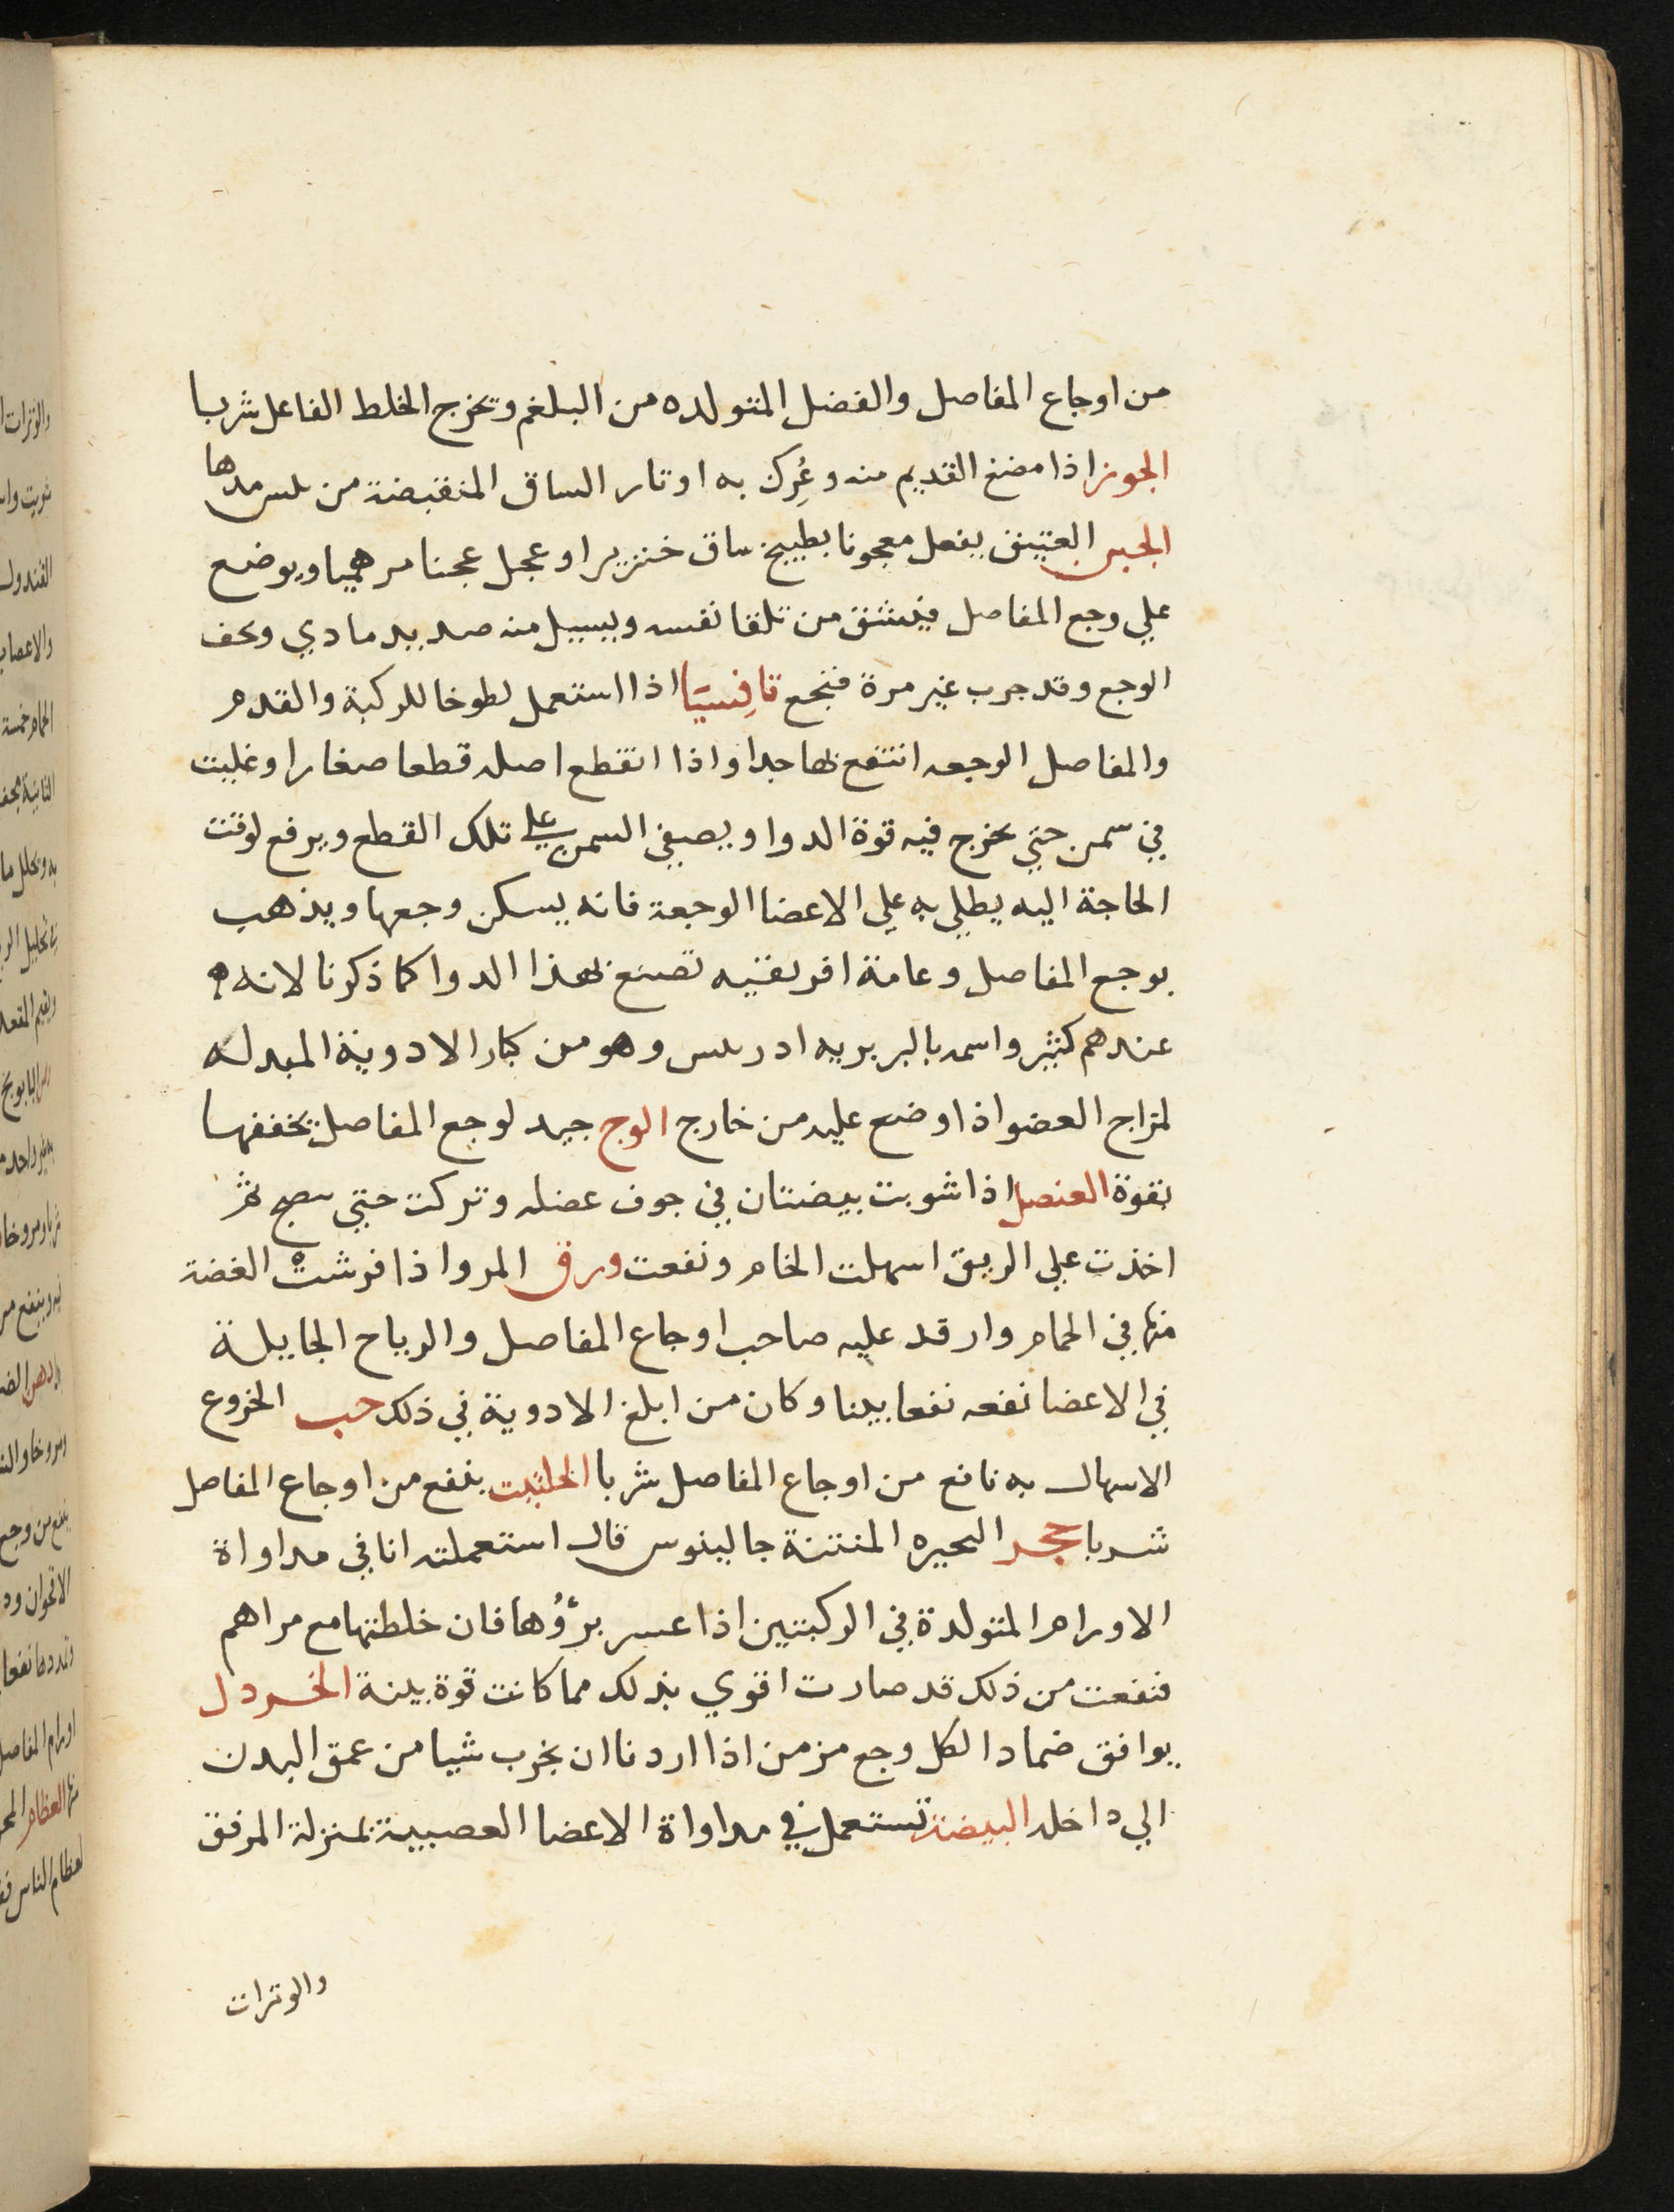 من اوجاع المفاصل والفضل المتولده من البلغم وتخرج الخلط الفاعل شربا
الجوز اذا مضغ القديم منه وعُرِك به اوتار الساق المنقبضة من
الجبن العتيق يفعل معجونا بطبيخ ساق خنزير او عجل عجنا مرهميا ويوضع
علي وجع المفاصل فينشق من تلقا نفسه ويسيل منه صديد مادي ويخف
الوجع وقد جرب غير مرة فنجع تافسيا اذا استعمل لطوخا للركبة والقدم
والمفاصل الوجعه انتفع بها جدا واذا انقطع اصله قطعا صغارا وغليت
في سمن حتي يخرج فيه قوة الدوا ويصفي السمن علي تلك القطع ويرفع لوقت
الحاجة اليه يطلي به علي الاعضا الوجعة فانه يسكن وجعها ويذهب
بوجع المفاصل وعامة افريقيه تصنع بهذا الدوا كما ذكرنا لانه
عندهم كثير واسمه بالبربريه ادريس وهو من كبار الادوية المبدله
لمزاج العضو اذا وضع عليه من خارج الوج جيد لوجع المفاصل يخففها
بقوة العنصل اذا شويت بيضتان في جوف عضله وتركت حتي تنضج ثم
اخذت علي الريق اسهلت الخام ونفعت ورق المرو اذا فرشت الغضة
منها في الحمام وارقد عليه صاحب اوجاع المفاصل والرياح الجايلة
في الاعضا نفعه نفعا بينا وكان من ابلغ الادوية في ذلك حب الخروع
الاسهال به نافع من اوجاع المفاصل شربا الحلتيت ينفع من اوجاع المفاصل
شربا حجر البحيره المنتنة جالينوس قال استعملته انا في مداواة
الاورام المتولدة في الركبتين اذا عسر برؤُها فان خلطتها مع مراهم
فنفعت من ذلك قد صارت اقوي بذلك مما كانت قوة بينة الخردل
يوافق ضمادا لكل وجع مزمن اذا اردنا ان نجرب شيا من عمق البدن
الي داخله البيضة تستعمل في مداواة الاعضا العصبية بمنزلة المرفق
والوترات